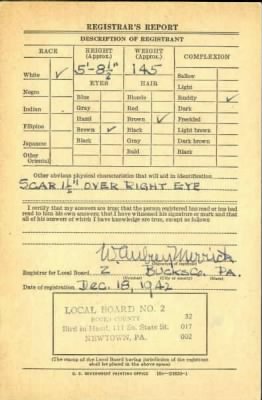 REGISTRAR'S REPORT
DESCRIPTION OF REGISTRANT
RACE HEIGHT (Approx.) WEIGHT (Approx.) COMPLEXION
White ✓ 5'-8½" 145 Sallow
EYES HAIR Light
Negro Blue Blonde Ruddy ✓
Indian Gray Red Dark
Filipino Hazel Brown ✓ Freckled
Brown ✓ Black Light brown
Japanese Black Gray Dark brown
Other Oriental Bald Black
Other obvious physical characteristics that will aid in identification
SCAR 1½" OVER RIGHT EYE
I certify that my answers are true; that the person registered has read or has had
read to him his own answers; that I have witnessed his signature or mark and that
all of his answers of which I have knowledge are true, except as follows:
Merrick
Registrar for Local Board 2 BUCKS Co. PA.
Date of registration DEC. 18, 1942
LOCAL BOARD NO. 2
BUCKS COUNTY 32
Bird in Hand, 111 So. State St. 017
NEWTOWN, PA. 002
(The stamp of the Local Board having jurisdiction of the registrant
shall be placed in the above space.)
U. S. GOVERNMENT PRINTING OFFICE